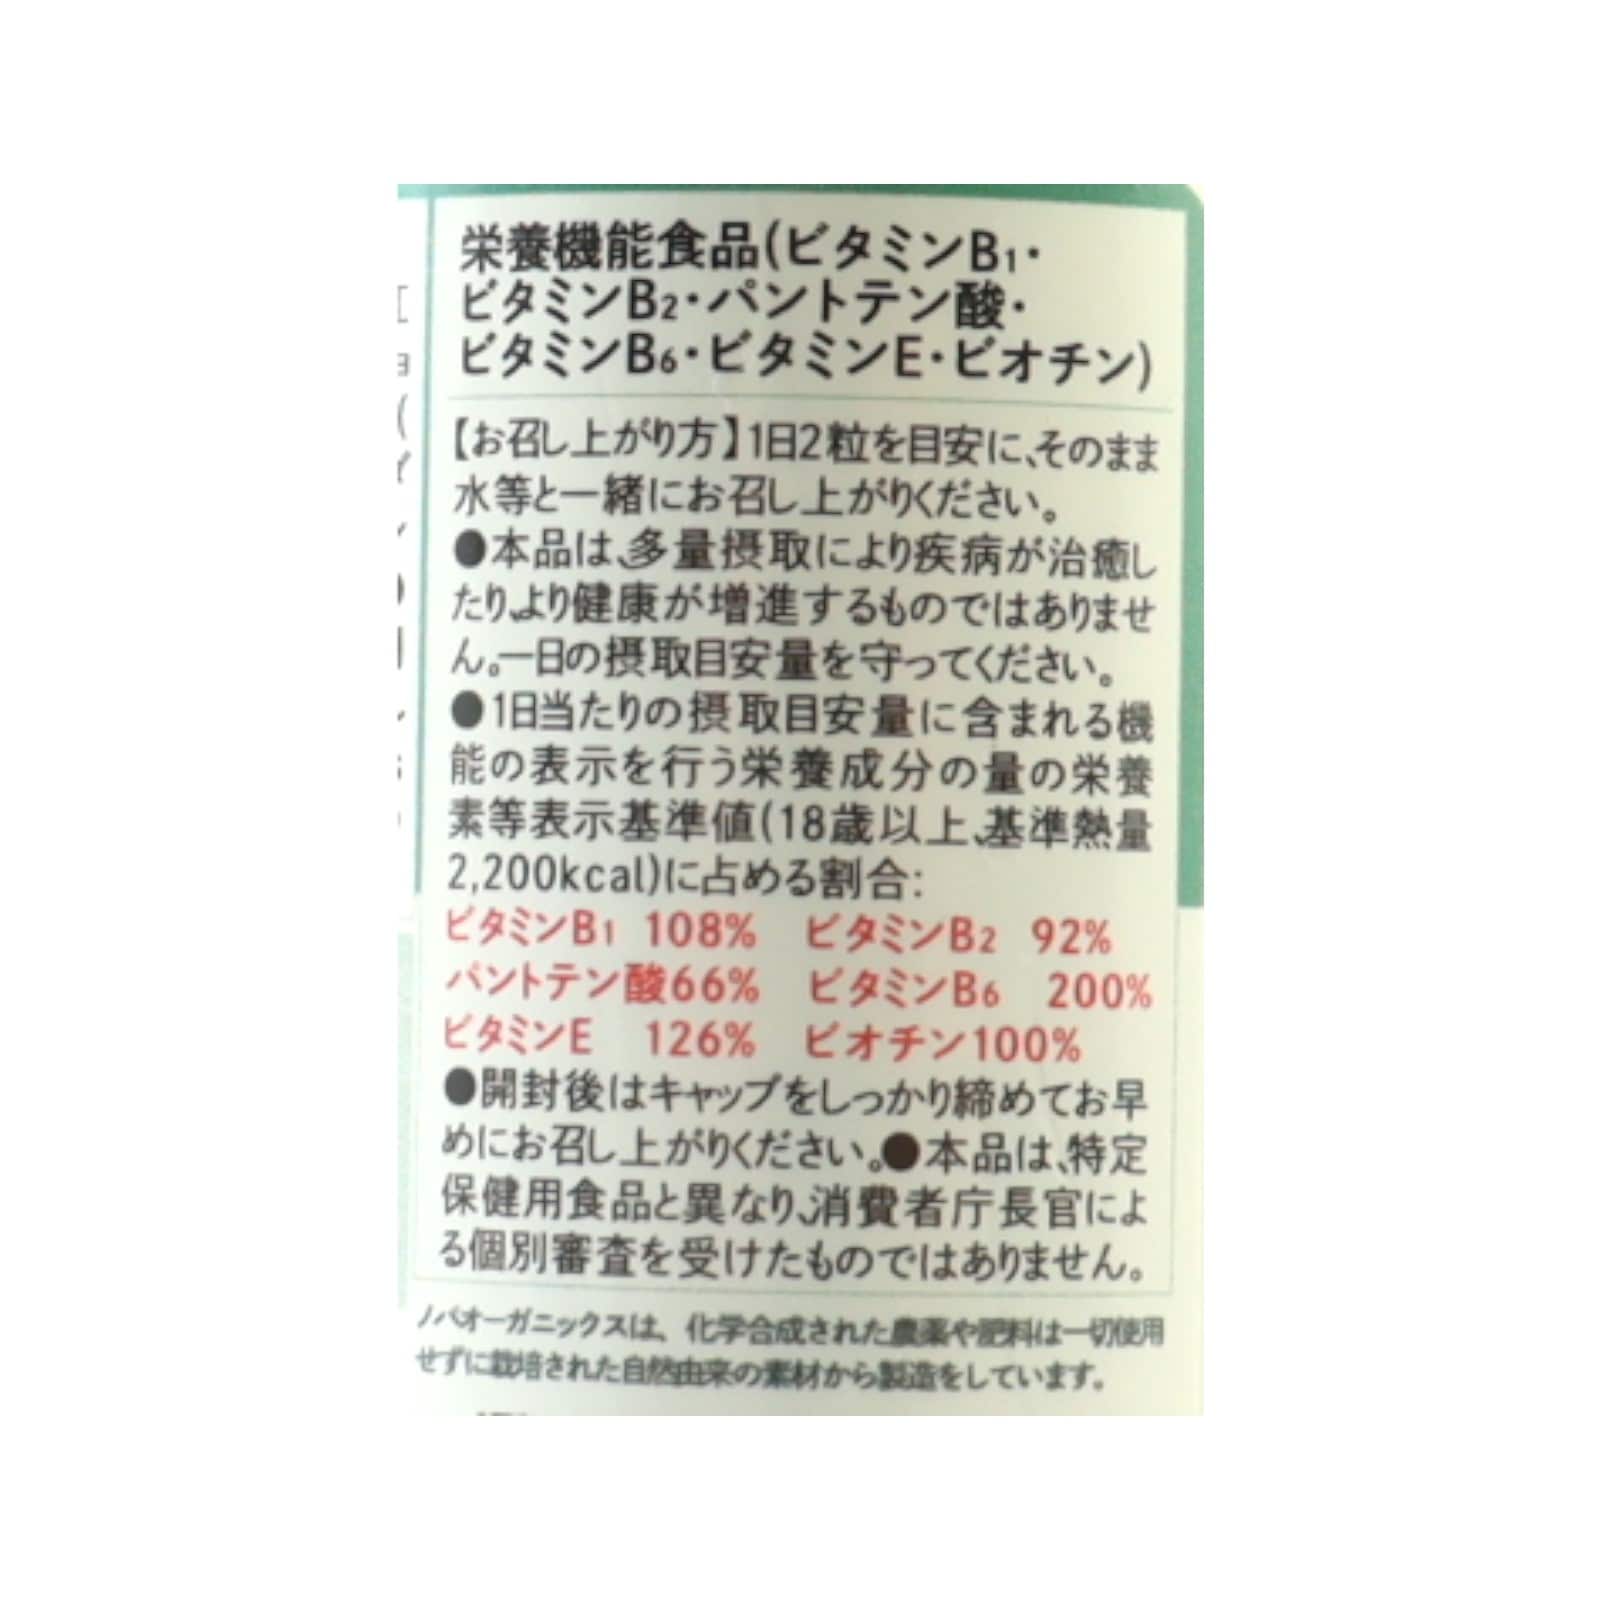 栄養機能食品(ビタミンB1・
ビタミンB2・パントテン酸・
ビタミンB6・ビタミンE・ビオチン)
【お召し上がり方】1日2粒を目安に、そのまま
水等と一緒にお召し上がりください。
●本品は、多量摂取により疾病が治癒し
たり、より健康が増進するものではありませ
ん。一日の摂取目安量を守ってください。
●1日当たりの摂取目安量に含まれる機
能の表示を行う栄養成分の量の栄養
素等表示基準値(18歳以上、基準熱量
2,200kcal)に占める割合:
ビタミンB1 108% ビタミンB2 92%
パントテン酸66% ビタミンB6 200%
ビタミンE 126% ビオチン100%
●開封後はキャップをしっかり締めてお早
めにお召し上がりください。●本品は、特定
保健用食品と異なり、消費者庁長官によ
る個別審査を受けたものではありません。
ノバオーガニックスは、化学合成された農薬や肥料は一切使用
せずに栽培された自然由来の素材から製造をしています。